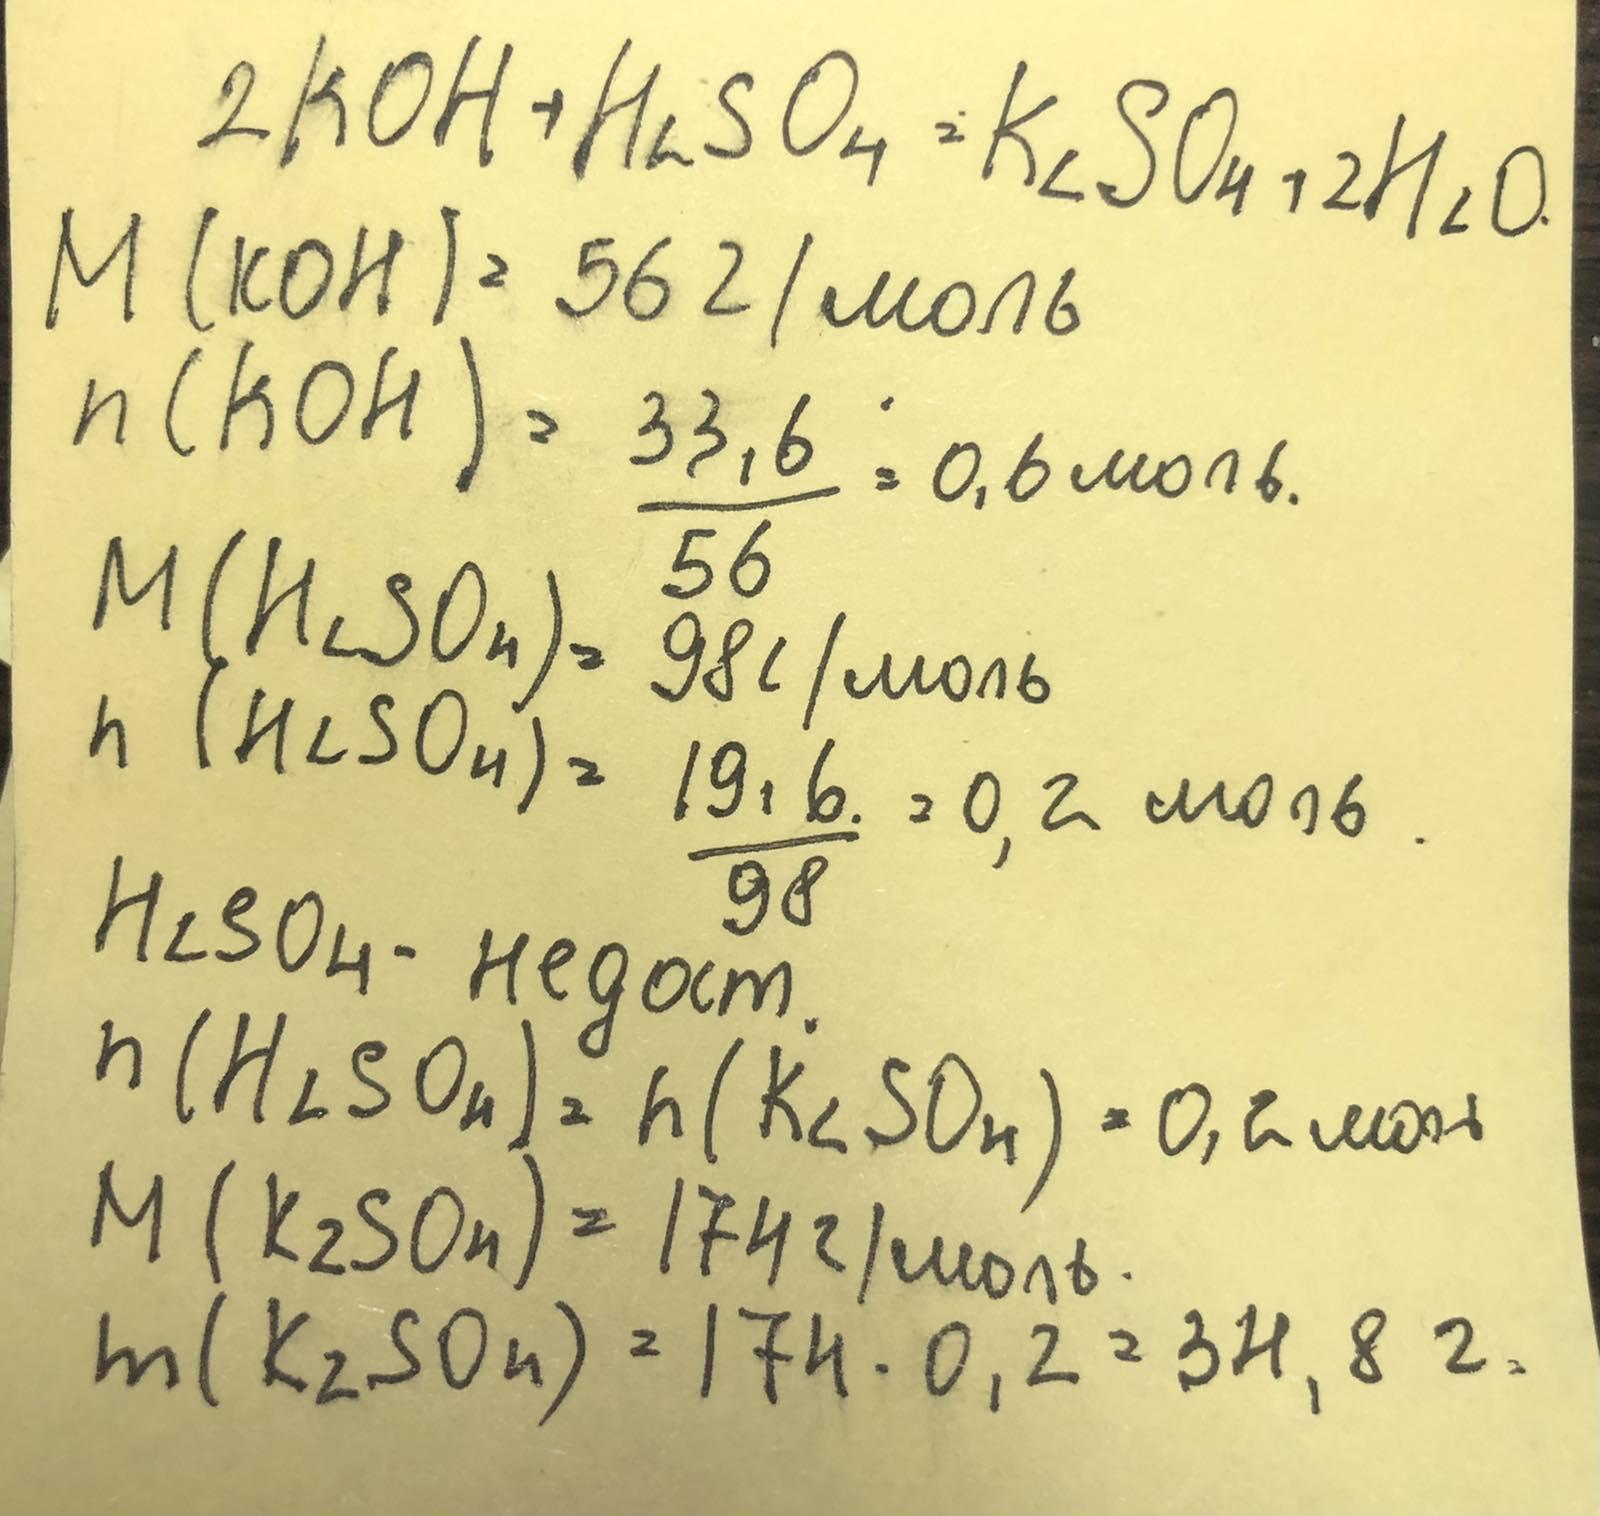 2KOH + H₂SO₄ = K₂SO₄ + 2H₂O.
M (KOH) = 56 г/моль
n (KOH) = 33,6/56 = 0,6 моль.
M (H₂SO₄) = 98 г/моль
n (H₂SO₄) = 19,6/98 = 0,2 моль.
H₂SO₄ - недост.
n (H₂SO₄) = n (K₂SO₄) = 0,2 моль
M (K₂SO₄) = 174 г/моль.
m (K₂SO₄) = 174 · 0,2 = 34,8 г.